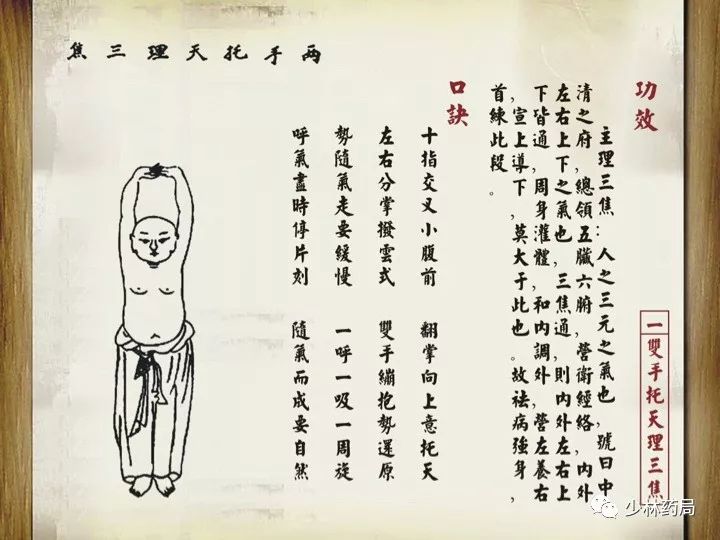 一雙手托天理三焦
功效
主理三焦:人之三元之氣也,號曰中
清之府,總領五臟六腑,營衛經絡,內外
左右上下之氣也,三焦通,則內外左右上
下皆通,周身灌體,和內調外,營左養右
,宣上導下,莫大于此也。故祛病強身,
首練此段。
口訣
十指交叉小腹前 翻掌向上意托天
左右分掌撥雲式 雙手繃抱勢還原
勢隨氣走要緩慢 一呼一吸一周旋
呼氣盡時停片刻 隨氣而成要自然
兩手托天理三焦
少林药局